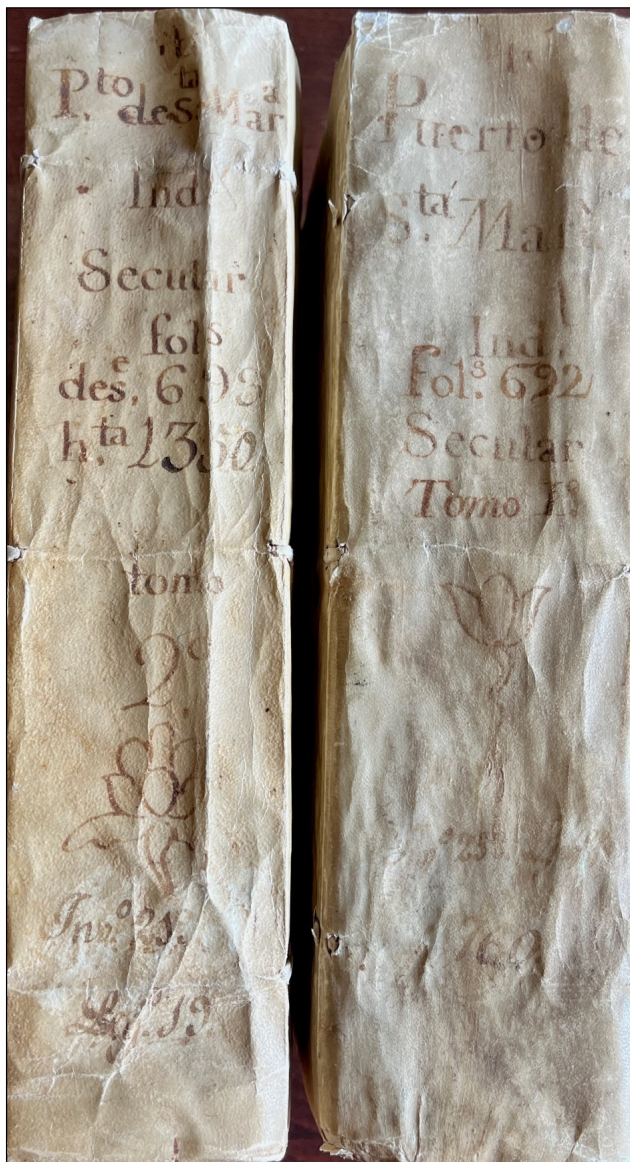 P.to de S.ta Mar.a
Ind.
Secular
fol.s
des.e 693
h.ta 1350
tomo
2.o
Inv.o 25.
Leg.o 19
Puerto de
S.ta Mar
Ind.
fol.s 692
Secular
Tomo 1.o